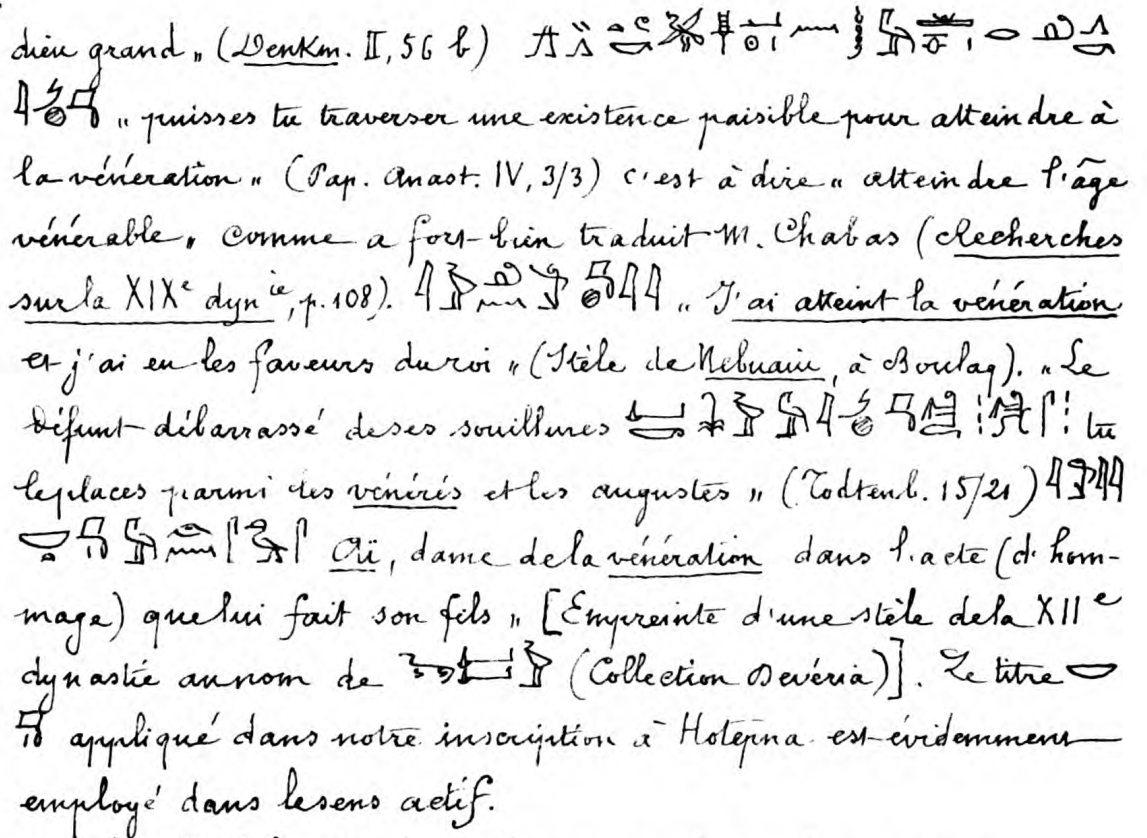 dieu grand „ (Denkm. II, 56 b)
„ puisses tu traverser une existence paisible pour atteindre à
la vénération „ (Pap. Anast. IV, 3/3) c'est à dire „ atteindre l'âge
vénérable „ comme a fort bien traduit M. Chabas (Recherches
sur la XIXe dynie, p. 108). „ J'ai atteint la vénération
et j'ai eu les faveurs du roi „ (Stèle de Nebuaiu, à Boulaq). „ Le
défunt débarrassé de ses souillures tu
le places parmi les vénérés et les augustes „ (Todtenb. 15/21)
Aï, dame de la vénération dans l'acte (d'hom-
mage) que lui fait son fils „ [Empreinte d'une stèle de la XIIe
dynastie au nom de (Collection Devéria)]. Le titre
appliqué dans notre inscription à Hotepna est évidemment
employé dans le sens actif.